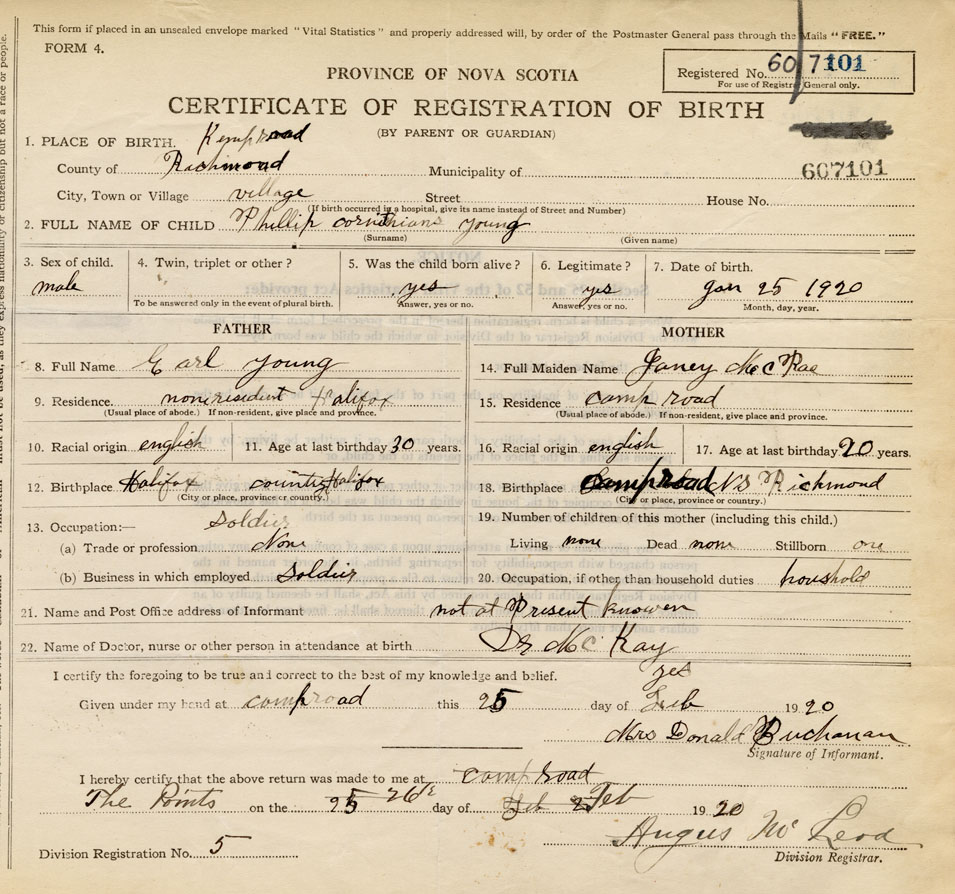 This form if placed in an unsealed envelope marked "Vital Statistics" and properly addressed will, by order of the Postmaster General pass through the Mails "FREE."
FORM 4.
Registered No. 607101
For use of Registrar General only.
PROVINCE OF NOVA SCOTIA
CERTIFICATE OF REGISTRATION OF BIRTH
(BY PARENT OR GUARDIAN)
607101
1. PLACE OF BIRTH. Kemproad
County of Richmond Municipality of
City, Town or Village village Street House No.
(If birth occurred in a hospital, give its name instead of Street and Number)
2. FULL NAME OF CHILD Phillip cornithians young
(Surname) (Given name)
3. Sex of child. 4. Twin, triplet or other? 5. Was the child born alive? 6. Legitimate? 7. Date of birth.
male yes yes Jan 25 1920
To be answered only in the event of plural birth. Answer, yes or no. Answer, yes or no. Month, day, year.
FATHER MOTHER
8. Full Name Earl young 14. Full Maiden Name Janey McRae
9. Residence nonresident Halifox 15. Residence camp road
(Usual place of abode.) If non-resident, give place and province. (Usual place of abode.) If non-resident, give place and province.
10. Racial origin english 11. Age at last birthday 30 years. 16. Racial origin english 17. Age at last birthday 20 years.
12. Birthplace Halifox county Halifox 18. Birthplace Camproad NS Richmond
(City or place, province or country.) (City or place, province or country.)
13. Occupation:— Soldier 19. Number of children of this mother (including this child.)
(a) Trade or profession None Living none Dead none Stillborn one
(b) Business in which employed Soldier 20. Occupation, if other than household duties houshold
21. Name and Post Office address of Informant not at Present knowen
22. Name of Doctor, nurse or other person in attendance at birth Dr McKay
yes
I certify the foregoing to be true and correct to the best of my knowledge and belief.
Given under my hand at camproad this 25 day of Feb 1920
Mrs Donald Buchanan
Signature of Informant.
I hereby certify that the above return was made to me at camp road
The Points on the 25 26th day of Feb Feb 1920
Angus McLeod
Division Registrar.
Division Registration No. 5